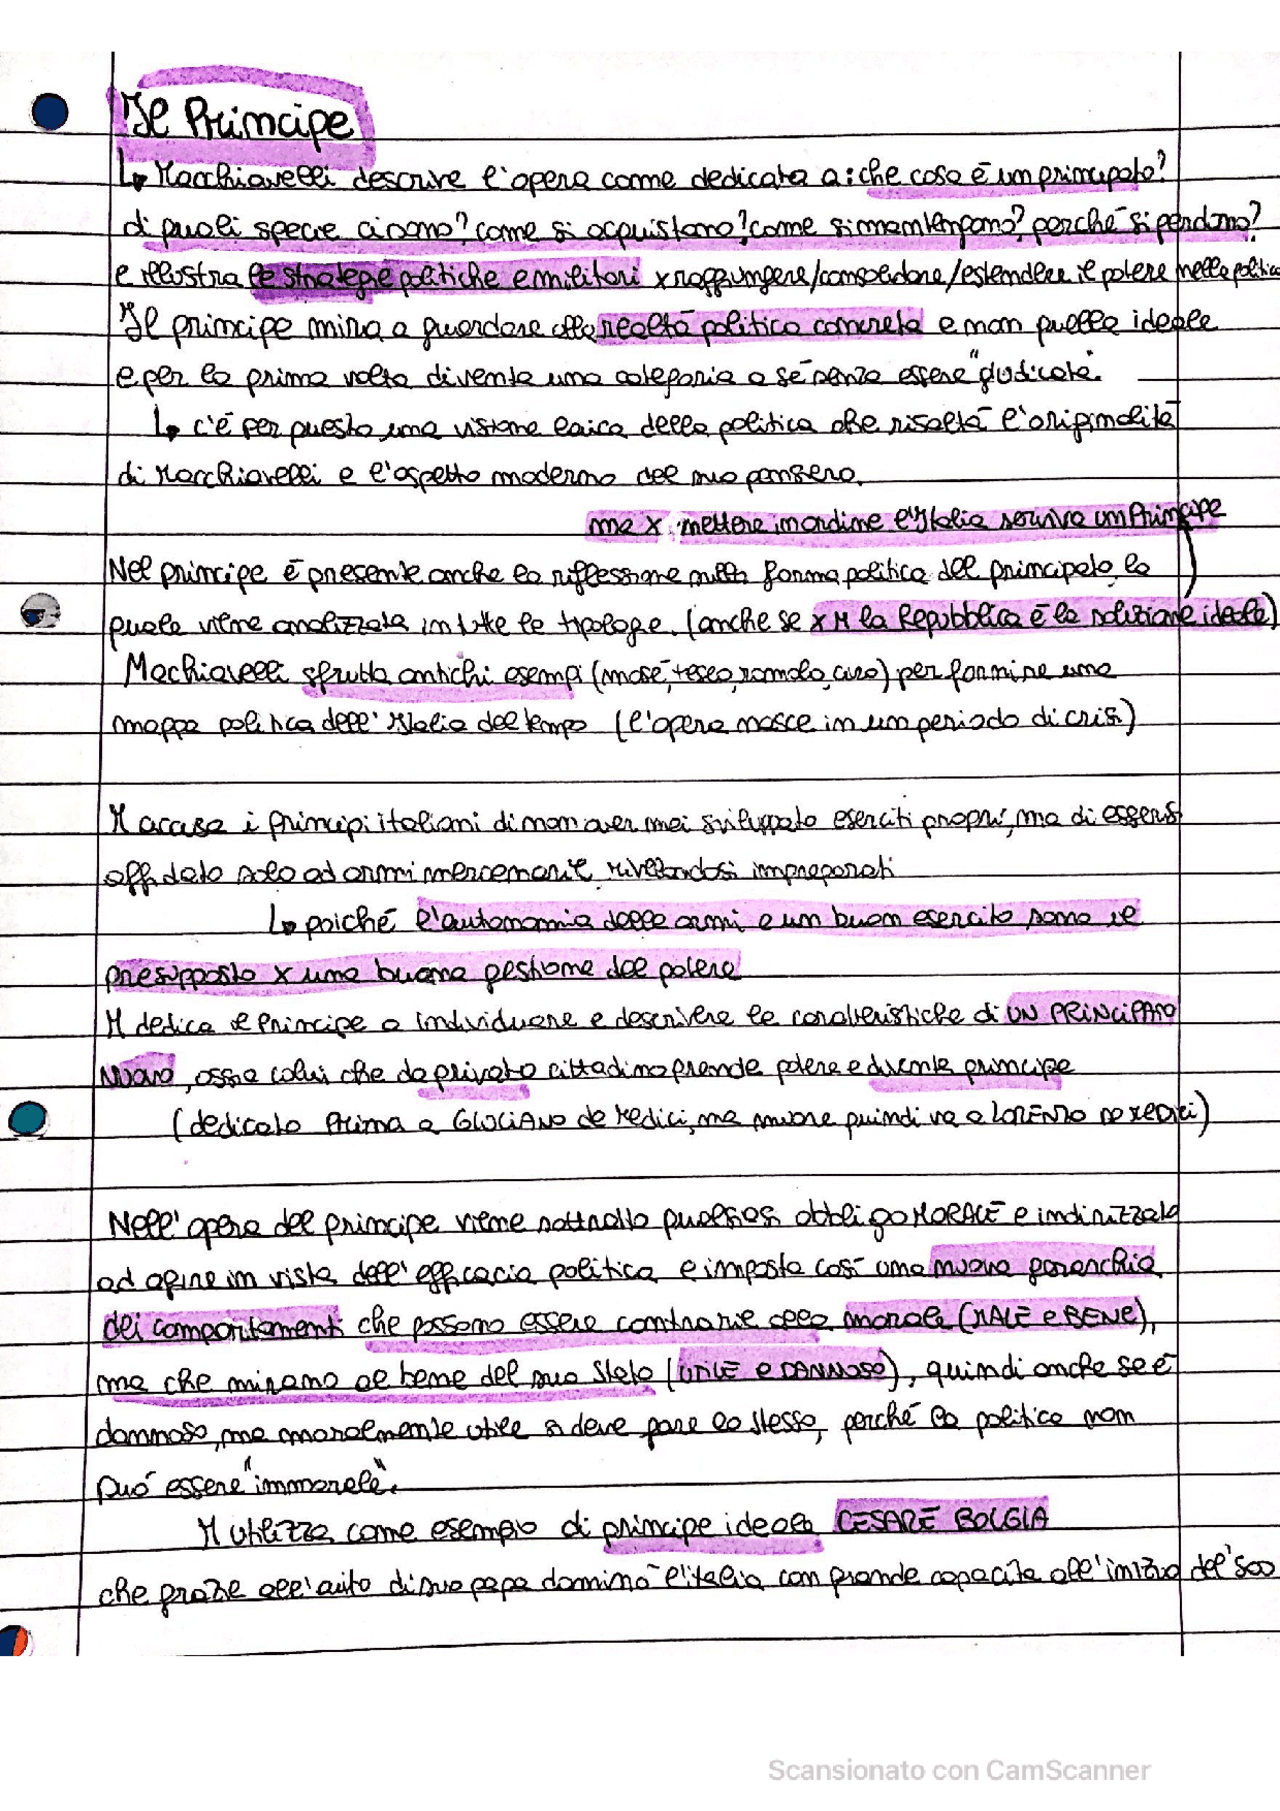 Il Principe
↳ Macchiavelli descrive l'opera come dedicata a: che cosa è un principato?
di quali specie ci sono? come si acquistano? come si mantengono? perché si perdono?
e illustra le strategie politiche e militari x raggiungere/consolidare/estendere il potere nella politica
Il principe mira a guardare alla realtà politica concreta e non quella ideale
e per la prima volta diventa una categoria a sé senza essere "giudicata".
↳ c'è per questo una visione laica della politica che risalta l'originalità
di Macchiavelli e l'aspetto moderno del suo pensiero.
ma x mettere in ordine l'Italia serviva un Principe
Nel principe è presente anche la riflessione sulla forma politica del principato, la
quale viene analizzata in tutte le tipologie. (anche se x M la Repubblica è la soluzione ideale)
Machiavelli sfrutta antichi esempi (mosè, teseo, romolo, ciro) per fornire una
mappa politica dell'Italia del tempo (l'opera nasce in un periodo di crisi)
M accusa i principi italiani di non aver mai sviluppato eserciti propri, ma di essersi
affidato solo ad armi mercenarie rivelandosi impreparati
↳ poiché l'autonomia delle armi e un buon esercito sono il
presupposto x una buona gestione del potere
M dedica il Principe a individuare e descrivere le caratteristiche di UN PRINCIPATO
NUOVO, ossia colui che da privato cittadino prende potere e diventa principe
(dedicato Prima a GIULIANO de Medici, ma muore quindi va a LORENZO DE MEDICI)
Nell'opera del principe viene sottratto qualsiasi obbligo MORALE e indirizzato
ad agire in vista dell'efficacia politica e imposta così una nuova gerarchia
dei comportamenti che possono essere contrarie alla morale (MALE e BENE),
ma che mirano al bene del suo Stato (UTILE e DANNOSO), quindi anche se è
dannoso, ma moralmente utile si deve fare lo stesso, perché la politica non
può essere "immorale".
M utilizza come esempio di principe ideale CESARE BOLGIA
che grazie all'aiuto di suo papa dominò l'italia con grande capacità all'inizio del '500
Scansionato con CamScanner